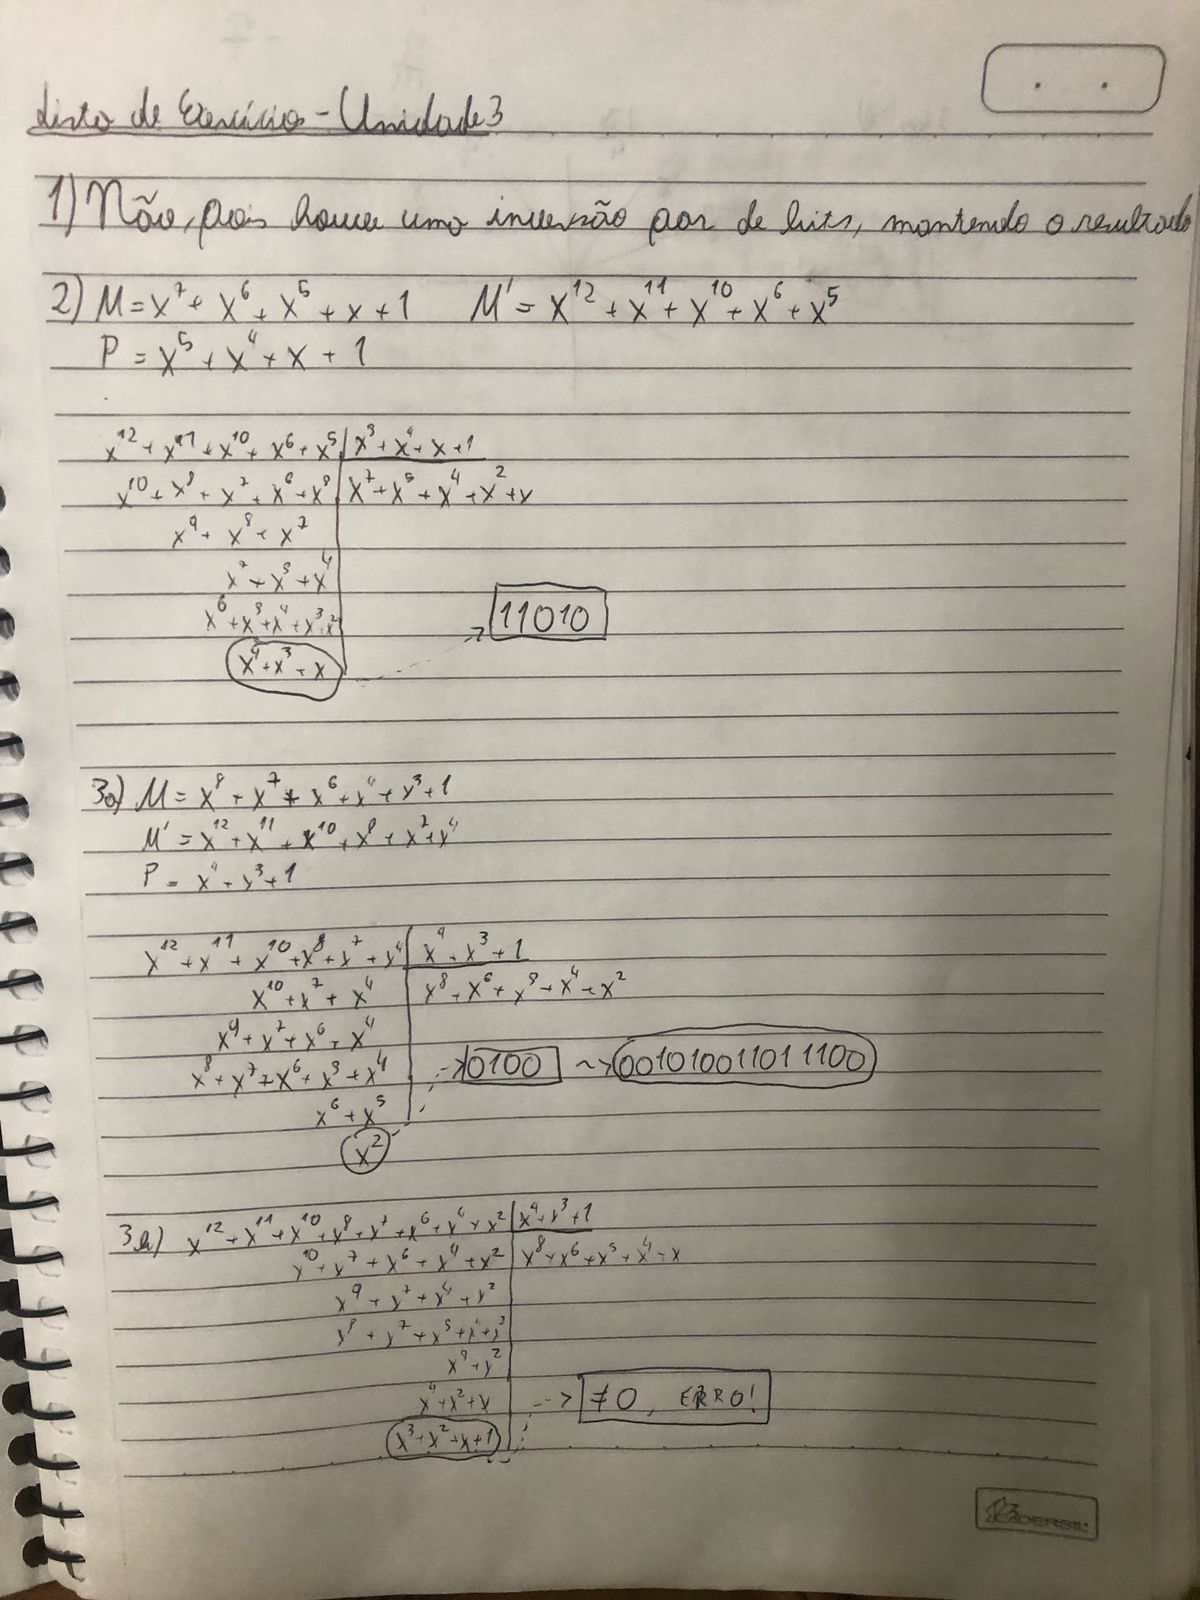 Lista de Exercícios - Unidade 3
1) Não, pois houve uma inversão par de bits, mantendo o resultado
2) M = x⁷ + x⁶ + x⁵ + x + 1 M' = x¹² + x¹¹ + x¹⁰ + x⁶ + x⁵
P = x⁵ + x⁴ + x + 1
x¹² + x¹¹ + x¹⁰ + x⁶ + x⁵ | x⁵ + x⁴ + x + 1
x¹⁰ + x⁸ + x⁷ + x⁶ + x⁵ | x⁷ + x⁵ + x⁴ + x² + x
x⁹ + x⁸ + x⁷
x⁷ + x⁵ + x⁴
x⁶ + x⁵ + x⁴ + x³ + x²
11010
x⁴ + x³ + x
3a) M = x⁸ + x⁷ + x⁶ + x⁴ + x³ + 1
M' = x¹² + x¹¹ + x¹⁰ + x⁸ + x⁷ + x⁴
P = x⁴ + x³ + 1
x¹² + x¹¹ + x¹⁰ + x⁸ + x⁷ + x⁴ | x⁴ + x³ + 1
x¹⁰ + x⁷ + x⁴ | x⁸ + x⁶ + x⁵ + x⁴ + x²
x⁹ + x⁷ + x⁶ + x⁴
x⁸ + x⁷ + x⁶ + x⁵ + x⁴ -> 0100 ~> 0010100110111100
x⁶ + x⁵
x²
3b) x¹² + x¹¹ + x¹⁰ + x⁸ + x⁷ + x⁶ + x⁴ + x² | x⁴ + x³ + 1
x¹⁰ + x⁷ + x⁶ + x⁴ + x² | x⁸ + x⁶ + x⁵ + x⁴ + x
x⁹ + x⁷ + x⁴ + x²
x⁸ + x⁷ + x⁵ + x⁴ + x²
x⁵ + x²
x⁴ + x² + x -> ≠ 0, ERRO!
x³ + x² + x + 1